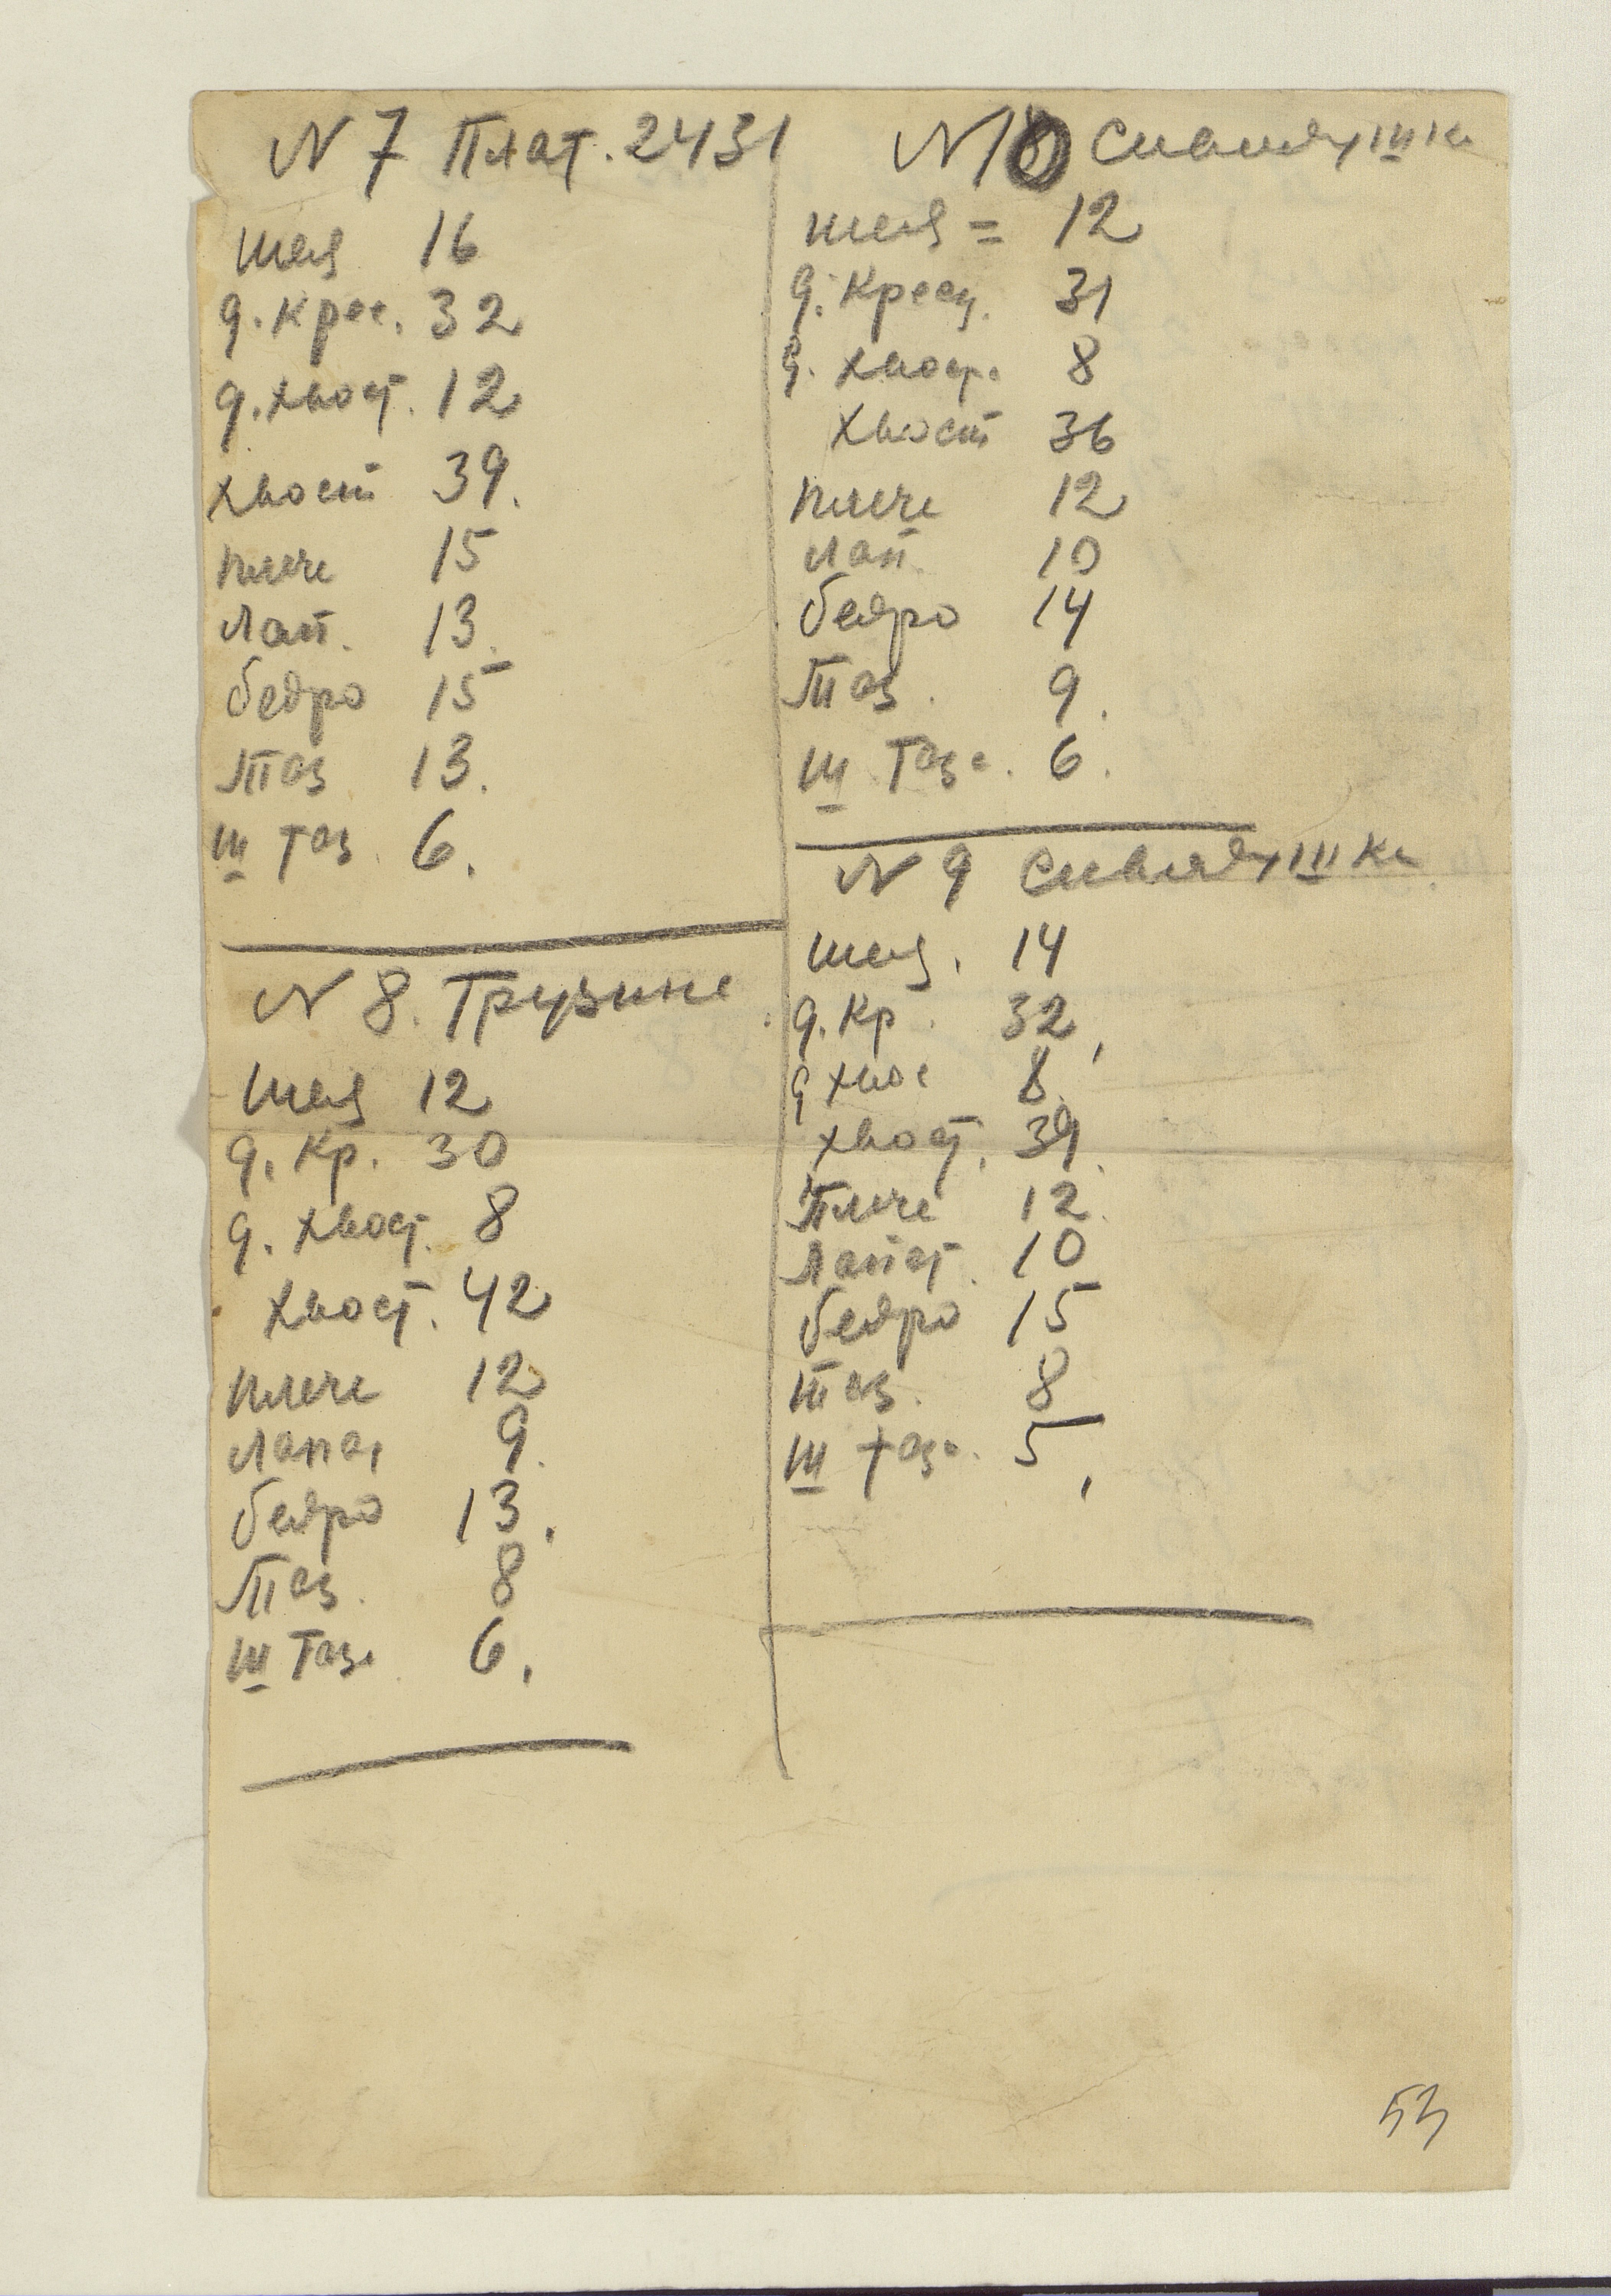 N 7 Плат. 2431
шея 16
д. крес. 32
д. хвост. 12
хвост 39.
плече 15
Лап. 13.
бедро 15
Таз 13.
ш таз. 6.
N 8. Грузинс
шея 12
д. Кр. 30
д. хвост. 8
хвост. 42
плече 12
лапат 9.
бедро 13.
Таз. 8
ш Таза. 6.
N 10
шея = 12
д. Крест. 31
д. хвост. 8
хвост 36
плече 12
лап. 10
бедро 14
Таз. 9.
ш Таза. 6.
N 9
шея. 14
д. Кр. 32,
д хвос 8.
хвост. 39.
Плече 12.
Лапат. 10
бедро 15
таз. 8
ш таза. 5,
53